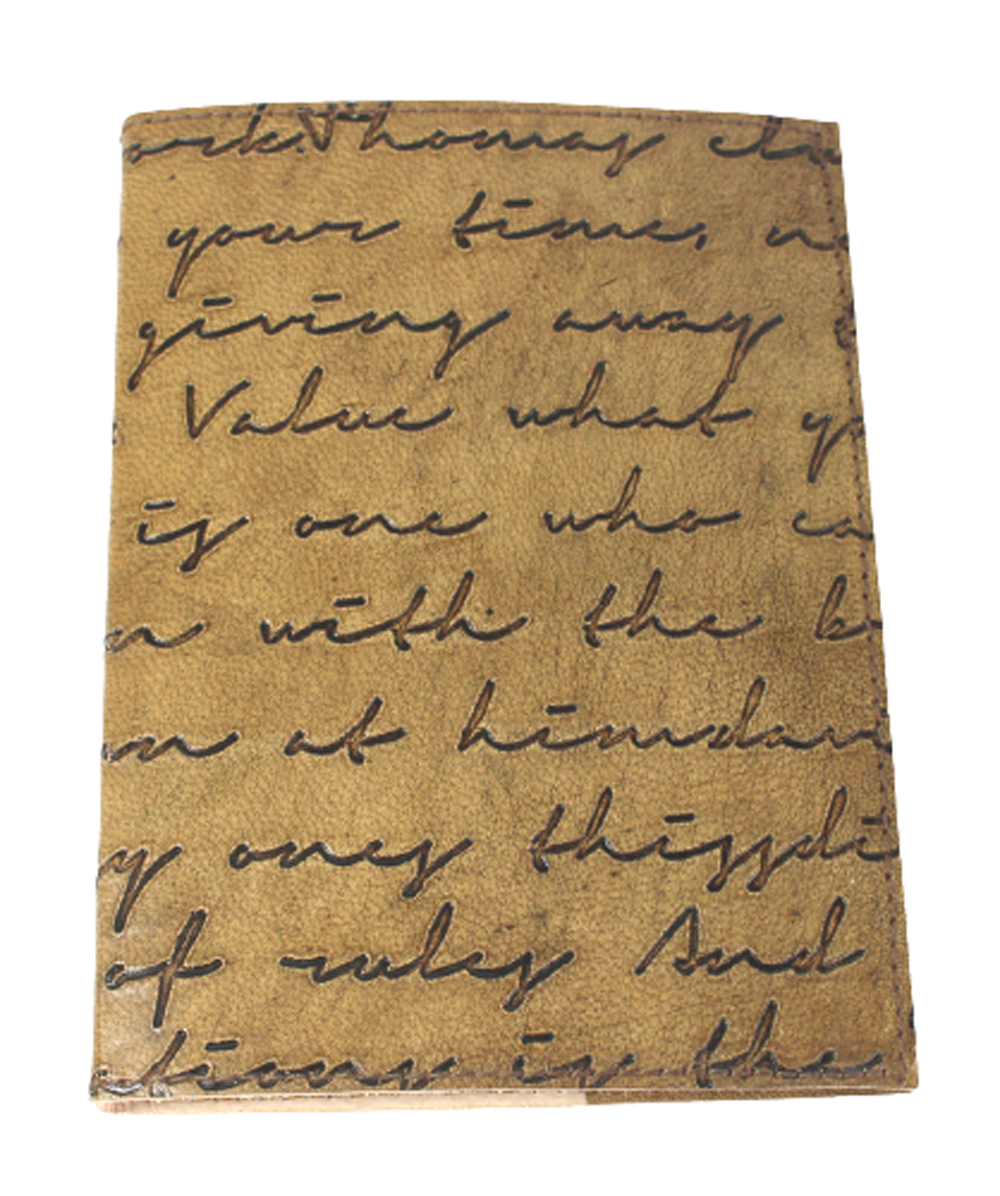 ork Thomas
your time,
giving away
Value what
is one who
with the
at himdavi
y ones thissdi
of rules And
tions is the